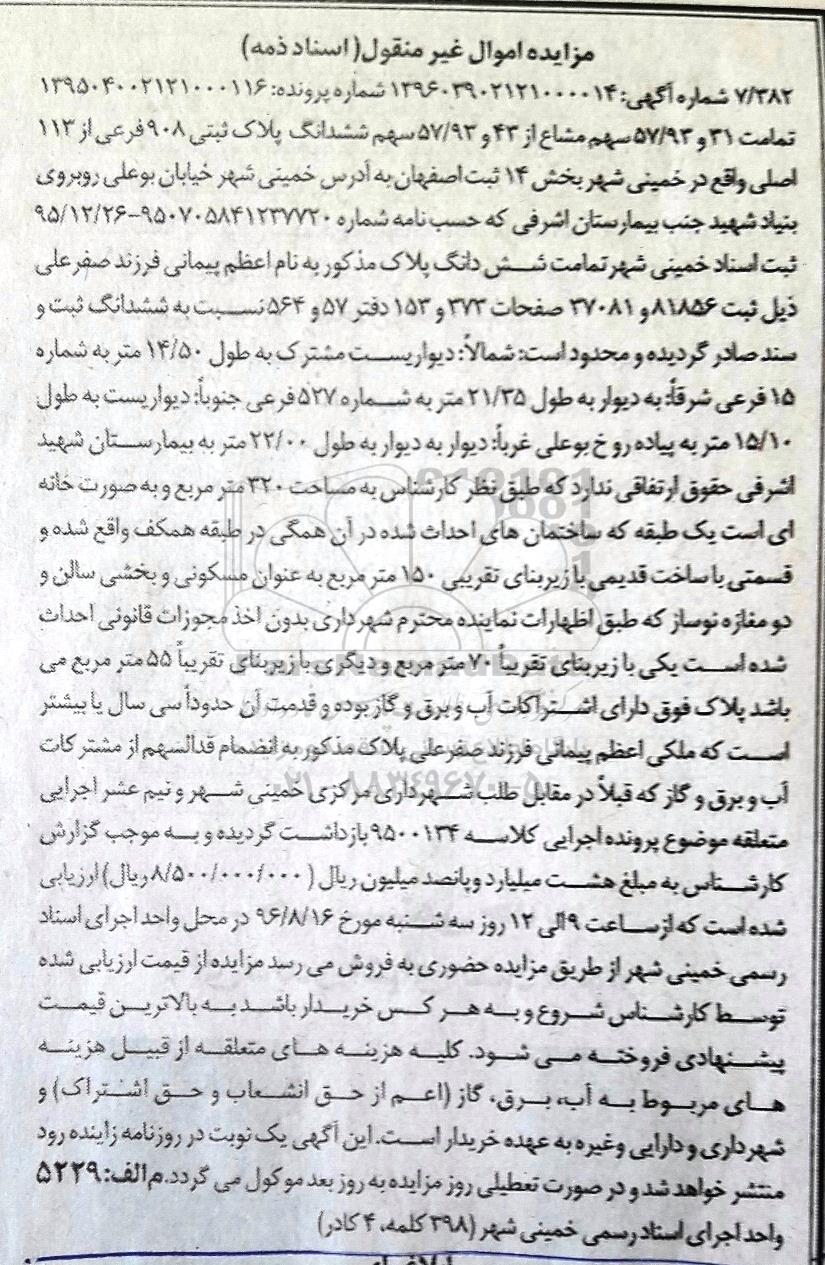 مزایده اموال غیر منقول( اسناد ذمه)
۷/۳۸۲ شماره آگهی: ۱۳۹۶۰۳۹۰۲۱۲۱۰۰۰۰۱۴ شماره پرونده: ۱۳۹۵۰۴۰۰۲۱۲۱۰۰۰۱۱۶
تمامت ۳۱ و ۵۷/۹۳ سهم مشاع از ۴۳ و ۵۷/۹۳ سهم ششدانگ پلاک ثبتی ۹۰۸ فرعی از ۱۱۳
اصلی واقع در خمینی شهر بخش ۱۴ ثبت اصفهان به آدرس خمینی شهر خیابان بوعلی روبروی
بنیاد شهید جنب بیمارستان اشرفی که حسب نامه شماره ۹۵۰۷۰۵۸۴۱۲۳۷۷۲۰-۹۵/۱۲/۲۶
ثبت اسناد خمینی شهر تمامت شش دانگ پلاک مذکور به نام اعظم پیمانی فرزند صفرعلی
ذیل ثبت ۸۱۸۵۶ و ۳۷۰۸۱ صفحات ۳۷۳ و ۱۵۳ دفتر ۵۷ و ۵۶۴ نسبت به ششدانگ ثبت و
سند صادر گردیده و محدود است: شمالاً: دیواریست مشترک به طول ۱۴/۵۰ متر به شماره
۱۵ فرعی شرقاً: به دیوار به طول ۲۱/۳۵ متر به شماره ۵۲۷ فرعی جنوباً: دیواریست به طول
۱۵/۱۰ متر به پیاده رو خ بوعلی غرباً: دیوار به دیوار به طول ۲۲/۰۰ متر به بیمارستان شهید
اشرفی حقوق ارتفاقی ندارد که طبق نظر کارشناس به مساحت ۳۲۰ متر مربع و به صورت خانه
ای است یک طبقه که ساختمان های احداث شده در آن همگی در طبقه همکف واقع شده و
قسمتی با ساخت قدیمی با زیربنای تقریبی ۱۵۰ متر مربع به عنوان مسکونی و بخشی سالن و
دو مغازه نوساز که طبق اظهارات نماینده محترم شهرداری بدون اخذ مجوزات قانونی احداث
شده است یکی با زیربنای تقریباً ۷۰ متر مربع و دیگری با زیربنای تقریباً ۵۵ متر مربع می
باشد پلاک فوق دارای اشتراکات آب و برق و گاز بوده و قدمت آن حدوداً سی سال یا بیشتر
است که ملکی اعظم پیمانی فرزند صفرعلی پلاک مذکور به انضمام قدالسهم از مشترکات
آب و برق و گاز که قبلاً در مقابل طلب شهرداری مرکزی خمینی شهر و نیم عشر اجرایی
متعلقه موضوع پرونده اجرایی کلاسه ۹۵۰۰۱۳۴ بازداشت گردیده و به موجب گزارش
کارشناس به مبلغ هشت میلیارد و پانصد میلیون ریال ( ۸/۵۰۰/۰۰۰/۰۰۰ریال) ارزیابی
شده است که از ساعت ۹ الی ۱۲ روز سه شنبه مورخ ۹۶/۸/۱۶ در محل واحد اجرای اسناد
رسمی خمینی شهر از طریق مزایده حضوری به فروش می رسد مزایده از قیمت ارزیابی شده
توسط کارشناس شروع و به هر کس خریدار باشد به بالاترین قیمت
پیشنهادی فروخته می شود. کلیه هزینه های متعلقه از قبیل هزینه
های مربوط به آب، برق، گاز (اعم از حق انشعاب و حق اشتراک) و
شهرداری و دارایی وغیره به عهده خریدار است. این آگهی یک نوبت در روزنامه زاینده رود
منتشر خواهد شد و در صورت تعطیلی روز مزایده به روز بعد موکول می گردد. م الف: ۵۲۲۹
واحد اجرای اسناد رسمی خمینی شهر (۳۹۸ کلمه، ۴ کادر)